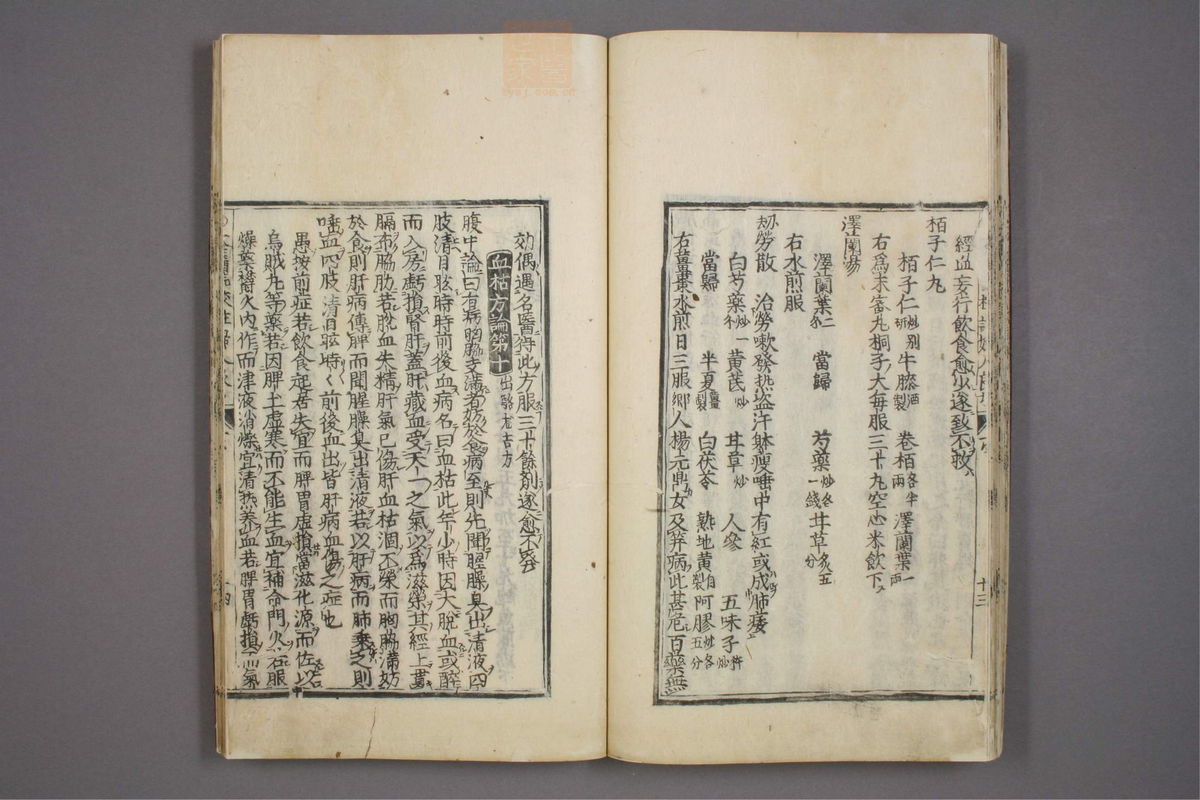 經血妄行飲食愈少遂致不救
栢子仁丸
栢子仁炒別研 牛膝酒製 卷栢各半兩 澤蘭葉二兩
右爲末宻丸桐子大毎服三十丸空心米飲下
澤蘭湯
澤蘭葉三 當歸 芍藥炒各一錢 甘草炙五分
右水煎服
劫勞散 治勞嗽發热盗汗體瘦唾中有紅或成肺痿
白芍藥炒 黃芪炒 甘草炒 人參 五味子杵炒
當歸 半夏薑製 白茯苓 熟地黃自製 阿膠炒各五分
右薑棗水煎日三服郷人楊元鼎女及笄病此甚危百藥無
十三
効偶遇名醫得此方服三十餘劑遂愈不發
血枯方論第十 出駱龙吉方
腹中論曰有病胸脇支滿者妨於食病至則先聞腥臊臭出清液四
肢清目眩時時前後血病名曰血枯此年少時因大脫血或醉
而入房虧損腎肝蓋肝藏血受天一之氣以爲滋榮其經上貫
膈布脇肋若脫血失精肝氣已傷肝血枯涸不榮而胸脇滿妨
於食則肝病傳脾而聞腥臊臭出清液若以肝病而肺乘之則
唾血四肢清目眩時〱前後血出皆肝病血傷之症也
愚按前症若飲食起居失宜而脾胃虛損當滋化源而佐以
烏賊丸等藥若因脾土虛寒而不能生血宜補命門火若服
燥藥欝火内作而津液消爍宜清热養血若脾胃虧損
十四